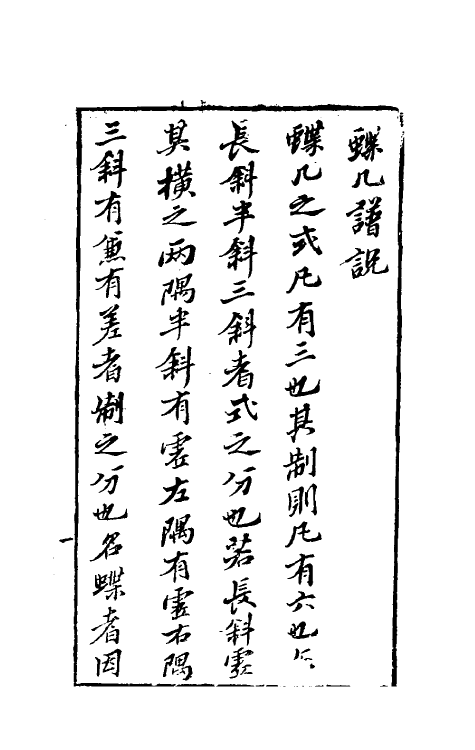 蝶几譜説
蝶几之式凡有三也其制則凡有六也
長斜半斜三斜者式之分也若長斜虛
其橫之兩隅半斜有虛左隅有虛右隅
三斜有兼有差者制之分也名蝶者因
一